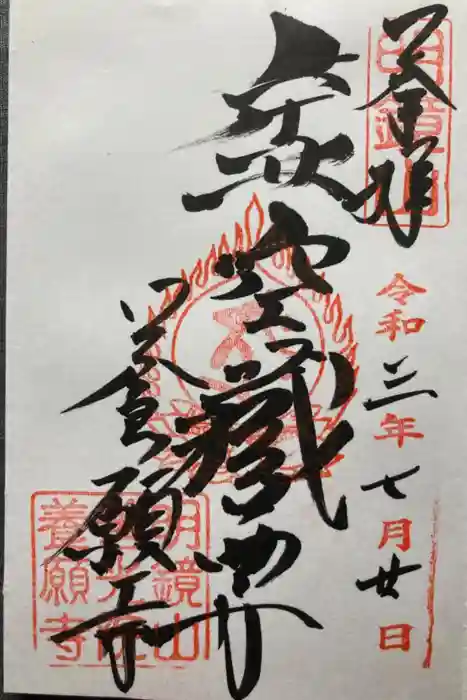 奉拝
明鏡山
令和三年七月廿日
虚空蔵尊
養願寺
明鏡山
養願寺